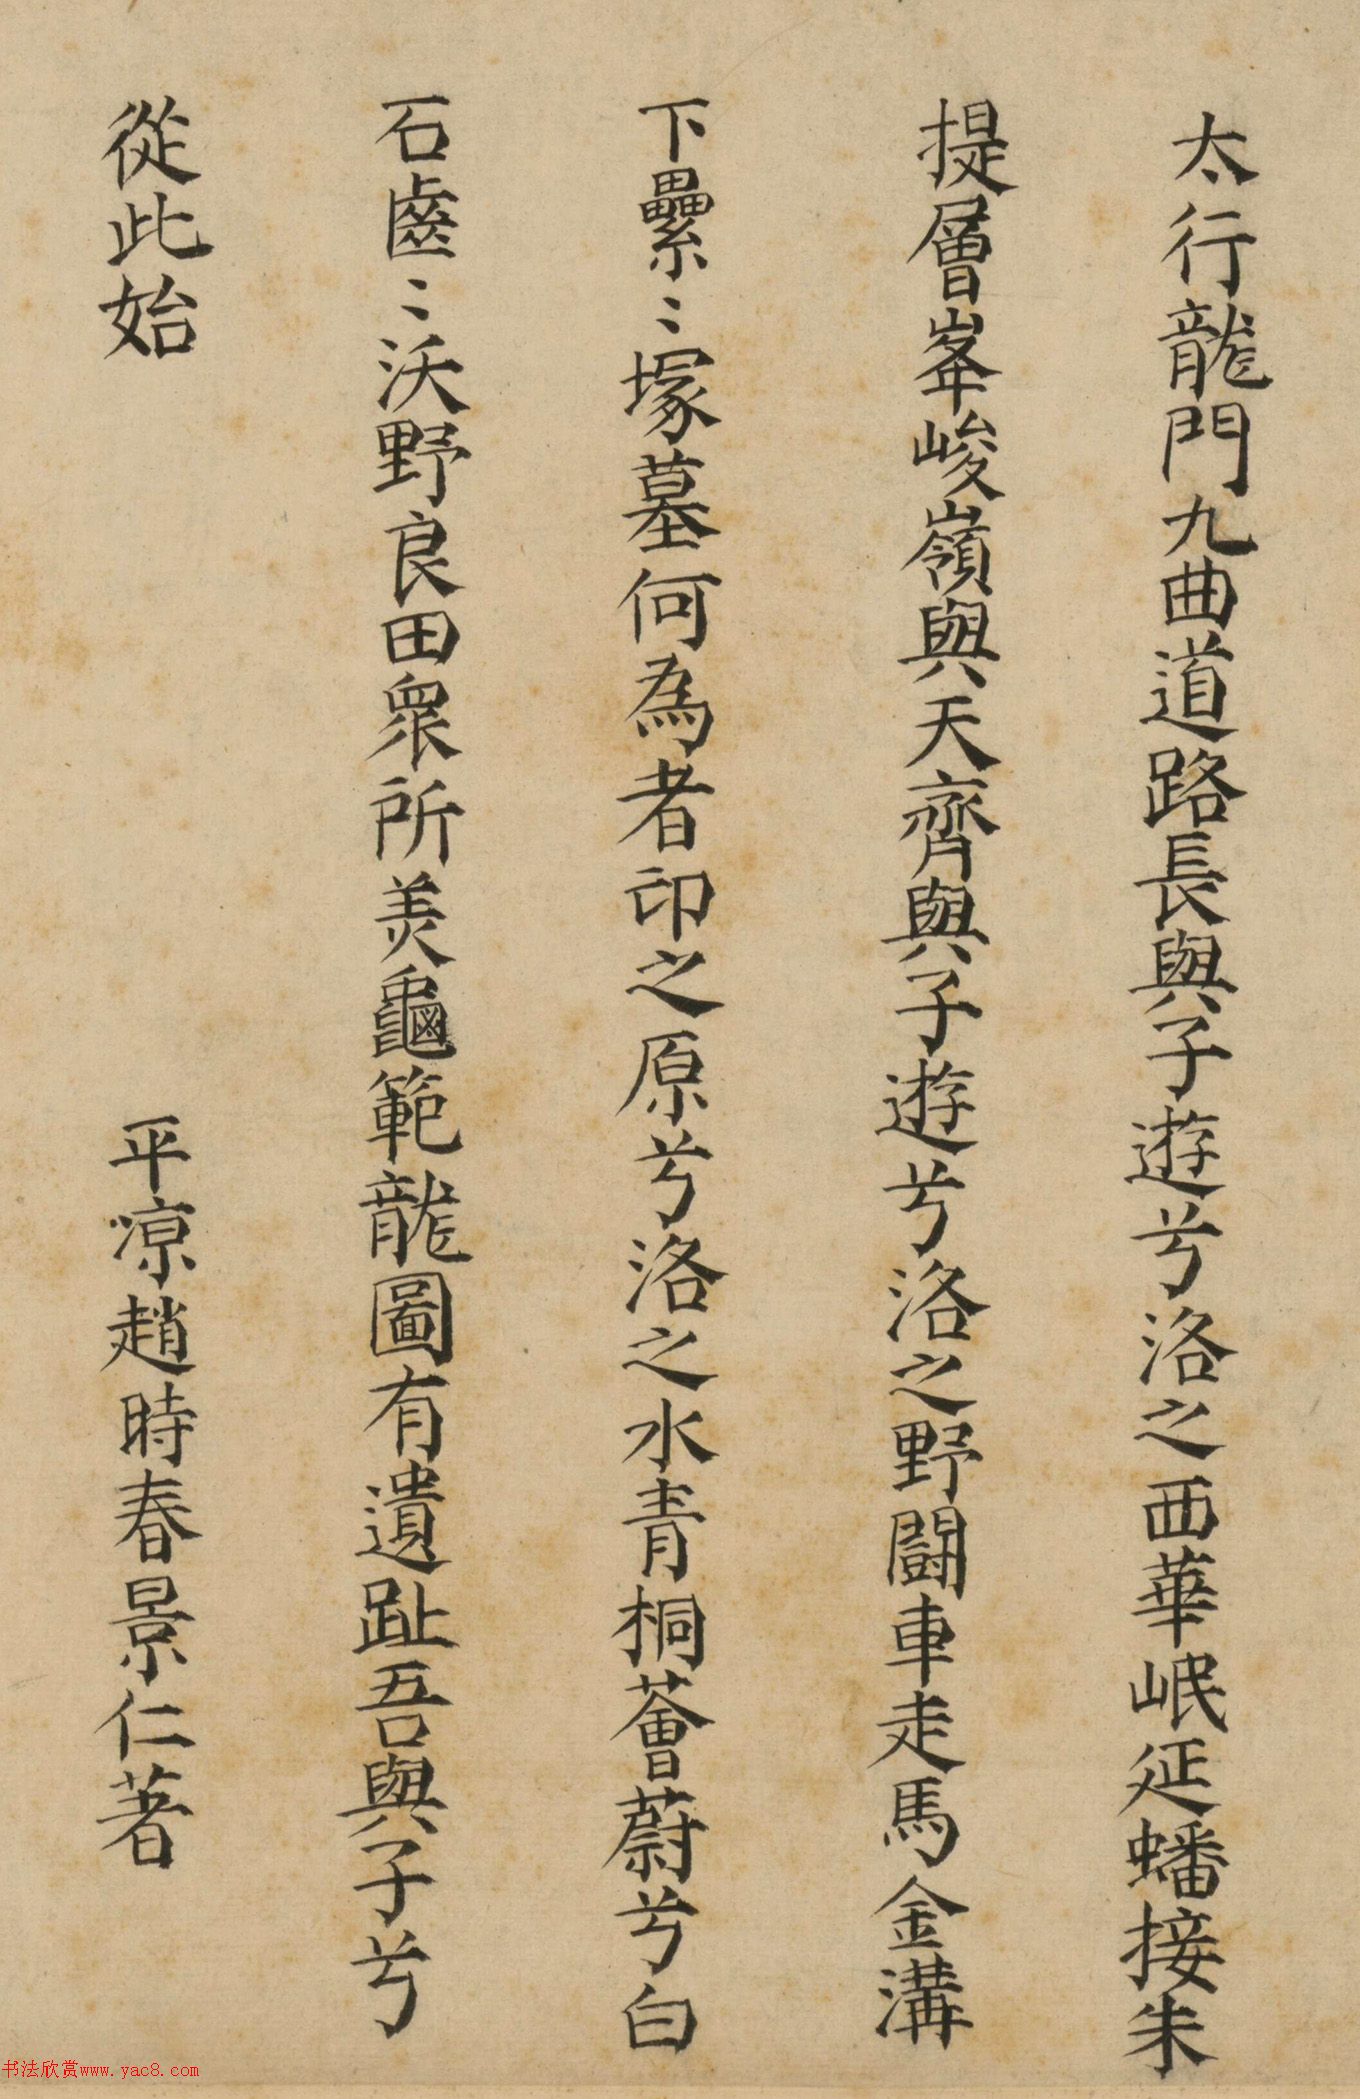 太行龍門九曲道路長與子遊兮洛之西華岷延蟠接朱
提層峯峻嶺與天齊與子遊兮洛之野鬪車走馬金溝
下纍〻塚墓何為者卬之原兮洛之水青桐薈蔚兮白
石齒〻沃野良田衆所羙龜範龍圖有遺趾吾與子兮
從此始
平凉趙時春景仁著
书法欣赏www.yac8.com